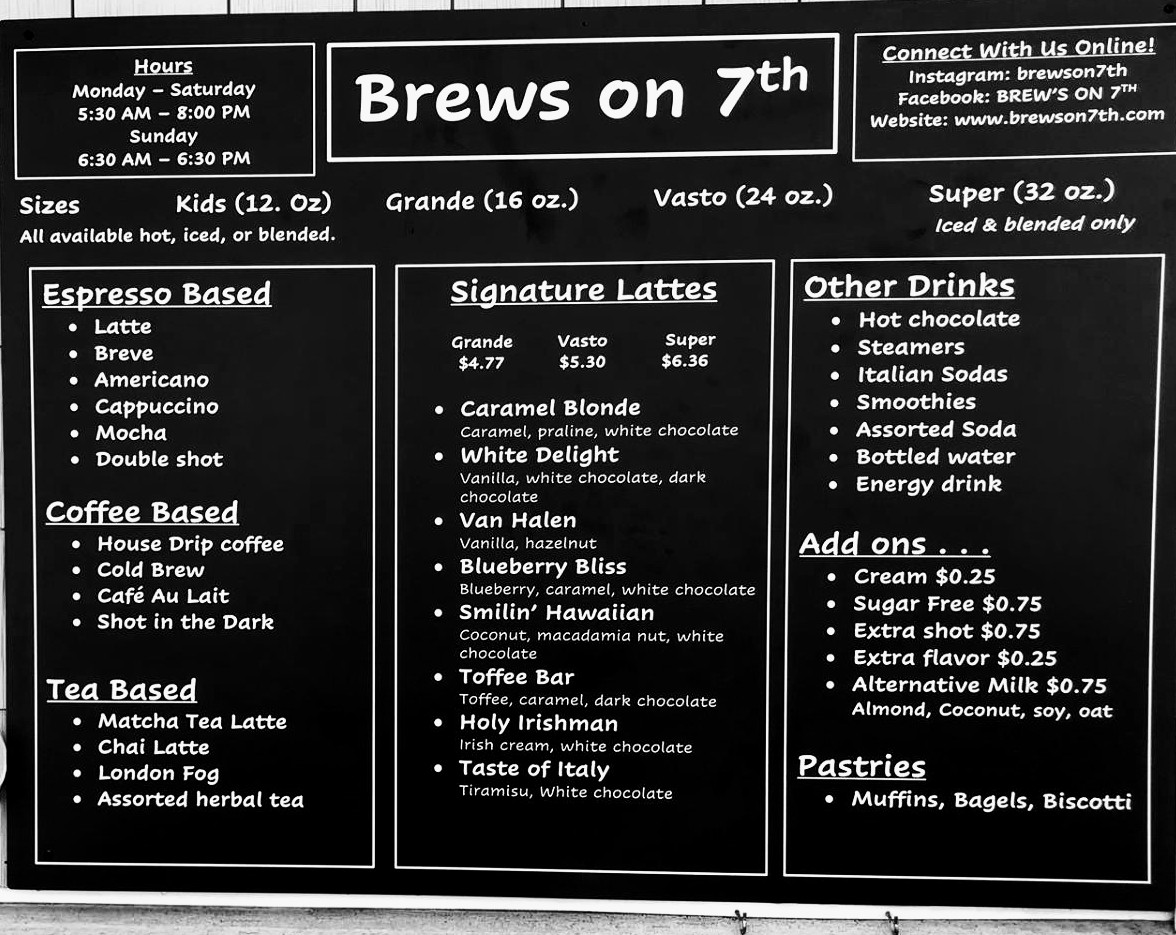 Hours
Monday – Saturday
5:30 AM – 8:00 PM
Sunday
6:30 AM – 6:30 PM
Brews on 7th
Connect With Us Online!
Instagram: brewson7th
Facebook: BREW'S ON 7TH
Website: www.brewson7th.com
Sizes Kids (12. Oz) Grande (16 oz.) Vasto (24 oz.) Super (32 oz.)
All available hot, iced, or blended. Iced & blended only
Espresso Based
• Latte
• Breve
• Americano
• Cappuccino
• Mocha
• Double shot
Coffee Based
• House Drip coffee
• Cold Brew
• Café Au Lait
• Shot in the Dark
Tea Based
• Matcha Tea Latte
• Chai Latte
• London Fog
• Assorted herbal tea
Signature Lattes
Grande Vasto Super
$4.77 $5.30 $6.36
• Caramel Blonde
Caramel, praline, white chocolate
• White Delight
Vanilla, white chocolate, dark
chocolate
• Van Halen
Vanilla, hazelnut
• Blueberry Bliss
Blueberry, caramel, white chocolate
• Smilin' Hawaiian
Coconut, macadamia nut, white
chocolate
• Toffee Bar
Toffee, caramel, dark chocolate
• Holy Irishman
Irish cream, white chocolate
• Taste of Italy
Tiramisu, White chocolate
Other Drinks
• Hot chocolate
• Steamers
• Italian Sodas
• Smoothies
• Assorted Soda
• Bottled water
• Energy drink
Add ons . . .
• Cream $0.25
• Sugar Free $0.75
• Extra shot $0.75
• Extra flavor $0.25
• Alternative Milk $0.75
Almond, Coconut, soy, oat
Pastries
• Muffins, Bagels, Biscotti